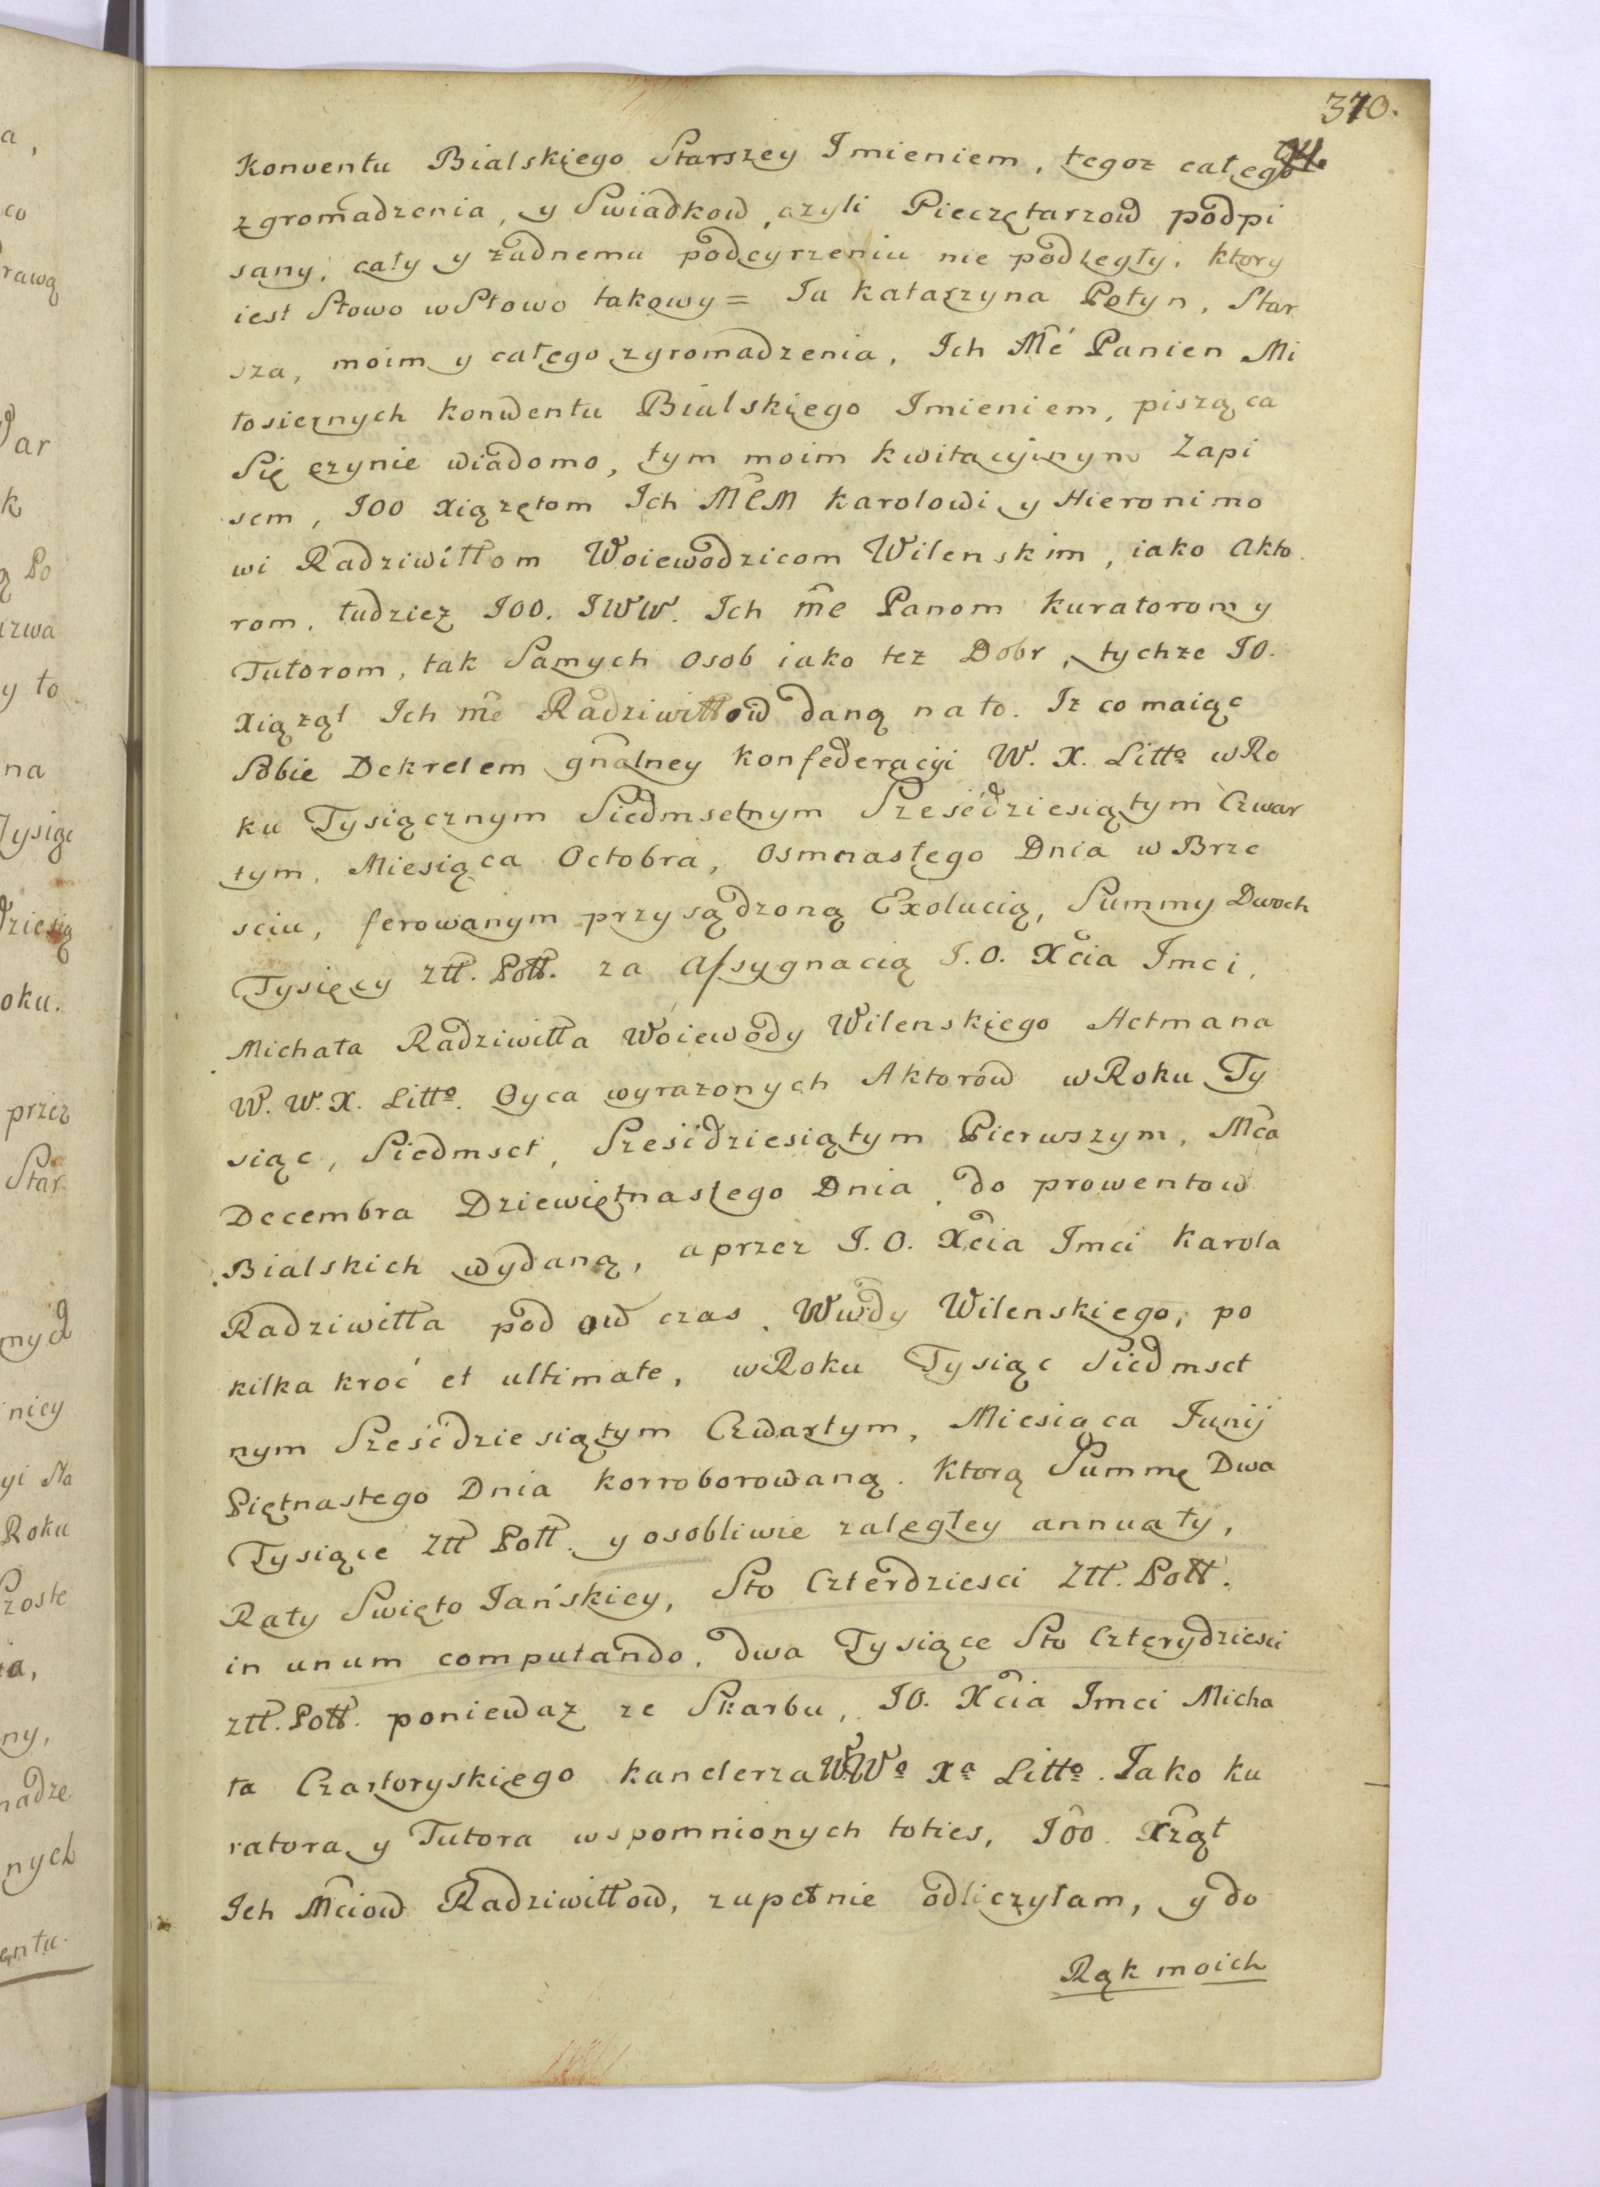 370.
Konventu Bialskiego Starszey Imieniem, tegoz całego
zgromadzenia, y Swiadkow, czyli Pieczętarzow podpi
sany, cały y żadnemu podeyrzeniu nie podległy, ktory
iest Słowo w Słowo takowy = Ja Katarzyna Potyn, Star
sza, moim y całego zgromadzenia, Ich Mć Panien Mi
łosiernych konwentu Bialskiego Imieniem, pisząca
Się czynie wiadomo, tym moim kwitacyinym Zapi
sem, JOO Xiążętom Ich MCM Karolowi y Hieronimo
wi Radziwiłłom Woiewodzicom Wilenskim, iako Akto
rom, tudziez JOO. JWW. Ich mc Panom Kuratorom y
Tutorom, tak Samych Osob iako tez Dobr, tychze JO.
Xiążąt Ich mc Radziwiłłow daną na to. Iz co maiąc
Sobie Dekretem gnalney Konfederacyi W. X. Litto w Ro
ku Tysiącznym Siedmsetnym Sześćdziesiątym Czwar
tym, Miesiąca Octobra, Osmnastego Dnia w Brze
sciu, ferowanym przysądzoną Exolucią, Summy Dwoch
Tysięcy Złł. Połł. za Assygnacią J. O. Xcia Jmci,
Michała Radziwiłła Woiewody Wilenskiego Hetmana
W. W. X. Litto. Oyca wyrazonych Aktorow w Roku Ty
siąc, Siedmset, Sześćdziesiątym Pierwszym, Mca
Decembra Dziewiętnastego Dnia, do prowentow
Bialskich wydaną, a przez J. O. Xcia Jmci Karola
Radziwiłła pod ow czas, Wwdy Wilenskiego, po
kilka kroć et ultimate, w Roku Tysiąc Siedmset
nym Sześćdziesiątym Czwartym, Miesiąca Junij
Piętnastego Dnia korroborowaną. Ktorą Summę Dwa
Tysiące Złł Połł. y osobliwie zaległey annuaty,
Raty Swięto Jańskiey, Sto Czterdziesci Złł. Połł.
in unum computando, dwa Tysiące Sto Czterydziesci
Złł. Połł. poniewaz ze Skarbu, JO. Xcia Jmci Micha
ła Czartoryskiego kanclerza WWo Xa Litto. Jako ku
ratora y Tutora wspomnionych toties, JOO. Xżąt
Ich Mciow Radziwiłłow, zupełnie odliczyłam, y do
Rąk moich